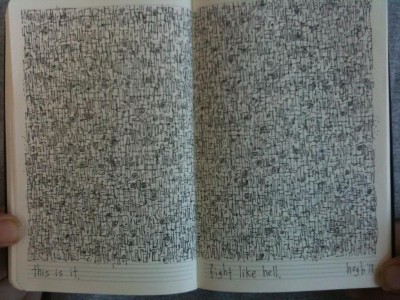 this is it.
fight like hell.